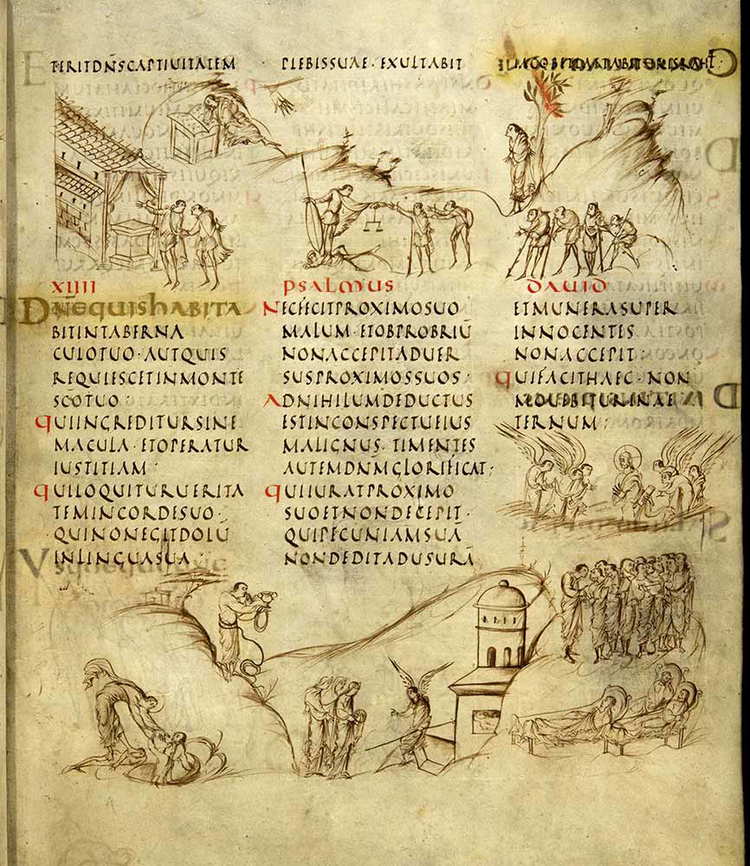 TERITDNSCAPTIUITATEM PLEBISSUAE · EXULTABIT
XIIII PSALMUS DAUID
DNEQUISHABITA
BITINTABERNA
CULOTUO · AUTQUIS
REQUIESCETINMONTE
SCOTUO :
QUIINGREDITURSINE
MACULA · ETOPERATUR
IUSTITIAM :
QUILOQUITURUERITA
TEMINCORDESUO ·
QUINONEGITDOLŪ
INLINGUASUA :
NECFECITPROXIMOSUO
MALUM · ETOBPROBRIŪ
NONACCEPITADUER
SUSPROXIMOSSUOS :
ADNIHILUMDEDUCTUS
ESTINCONSPECTUEIUS
MALIGNUS · TIMENTES
AUTEMDNMGLORIFICAT :
QUIIURATPROXIMO
SUOETNONDECEPIT ·
QUIPECUNIAMSUĀ
NONDEDITADUSURĀ
ETMUNERASUPER
INNOCENTES
NONACCEPIT :
QUIFACITHAEC · NON
MOUEBITURINAE
TERNUM :